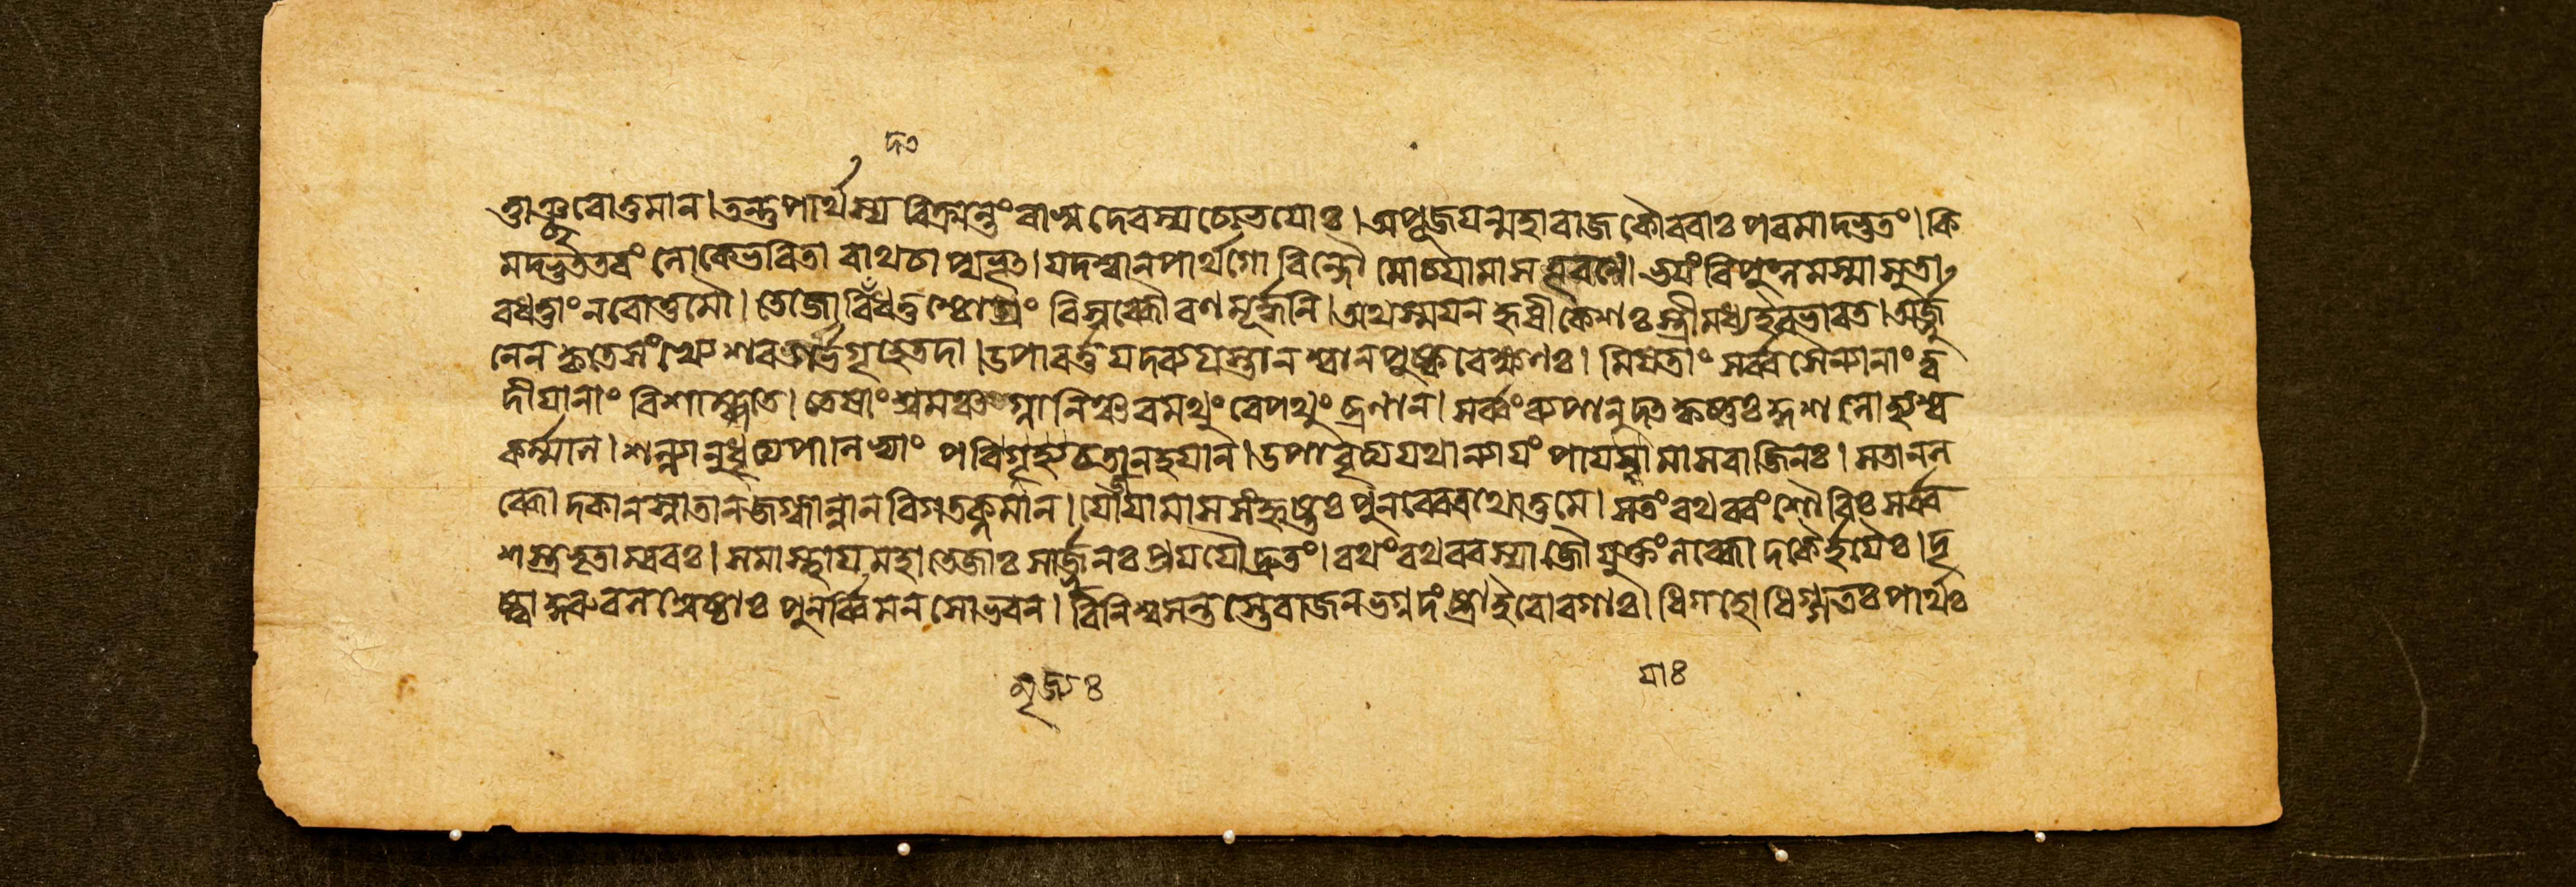 দৃ০
ত্তাঞ্ছরোত্তমান।তন্তুপার্থস্য বিক্রান্তং বাসুদেবস্যচোভয়োঃ।অপূজয়ন্মহারাজ কৌরবাঃ পরমাদ্ভুতং।কি
মদ্ভুততরং লোকেভবিতা বাথচাপ্যভূৎ।যদশ্বানপার্থগোবিন্দৌ মোচয়ামাসতূরণে।ভয়ংবিপুলমস্মাসুতা
বধত্তাংনরোত্তমৌ।তেজোবিধত্তুশ্চোগ্রং বিস্রব্ধৌ রণমূর্দ্ধনি।অথস্ময়ন হৃষীকেশঃ স্ত্রীমধ্যইবভারত।অর্জ্জু
নেন কৃতেসংখ্যে শরগর্ভগৃহেতদা।উপাবর্ত্তয়দব্যগ্রস্তানশ্বানপুষ্করেক্ষণঃ।মিষতাং সর্ব্বসৈন্যানাং ত্ব
দীয়ানাং বিশাম্পতে।তেষাংশ্রমঞ্চগ্লানিঞ্চবমথুংবেপথুংব্রণান।সর্ব্বংব্যপানুদৎকৃষ্ণঃকুশলোহ্যশ্ব
কর্ম্মনি।শল্যানুদ্ধৃত্যপাণিভ্যাং পরিমৃজ্যচতানহয়ান।উপাবৃত্যযথান্যায়ং পায়য়ামাসবাজিনঃ।সতানল
ব্ধোদকানস্নাতানজগ্ধান্নানবিগতক্লমান।যোজয়ামাসসংহৃষ্টঃ পুনরেবরথোত্তমে।সতংরথবরংশৌরিঃ সর্ব্ব
শস্ত্রভৃতাম্বরঃ।সমাস্থায়মহাতেজাঃ সার্জ্জুনঃ প্রযযৌদ্রুতং।রথংরথবরস্যাজৌযুক্তংলব্ধোদকৈর্হয়ৈঃ।দৃ
ষ্ট্বাকুরুবলশ্রেষ্ঠাঃ পুনর্ব্বিমনসোভবন।বিনিশ্বসন্তস্তেরাজনভগ্নদংষ্ট্রাইবোরগাঃ।ধিগহোধিগ্গতঃপার্থঃ
য়াঃ